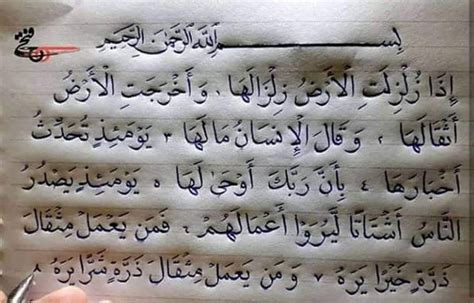 بسم الله الرحمن الرحيم
إِذَا زُلْزِلَتِ الْأَرْضُ زِلْزَالَهَا ١ وَأَخْرَجَتِ الْأَرْضُ
أَثْقَالَهَا ٢ وَقَالَ الْإِنسَانُ مَا لَهَا ٣ يَوْمَئِذٍ تُحَدِّثُ
أَخْبَارَهَا ٤ بِأَنَّ رَبَّكَ أَوْحَىٰ لَهَا ٥ يَوْمَئِذٍ يَصْدُرُ
النَّاسُ أَشْتَاتًا لِّيُرَوْا أَعْمَالَهُمْ ٦ فَمَن يَعْمَلْ مِثْقَالَ
ذَرَّةٍ خَيْرًا يَرَهُ ٧ وَمَن يَعْمَلْ مِثْقَالَ ذَرَّةٍ شَرًّا يَرَهُ ٨